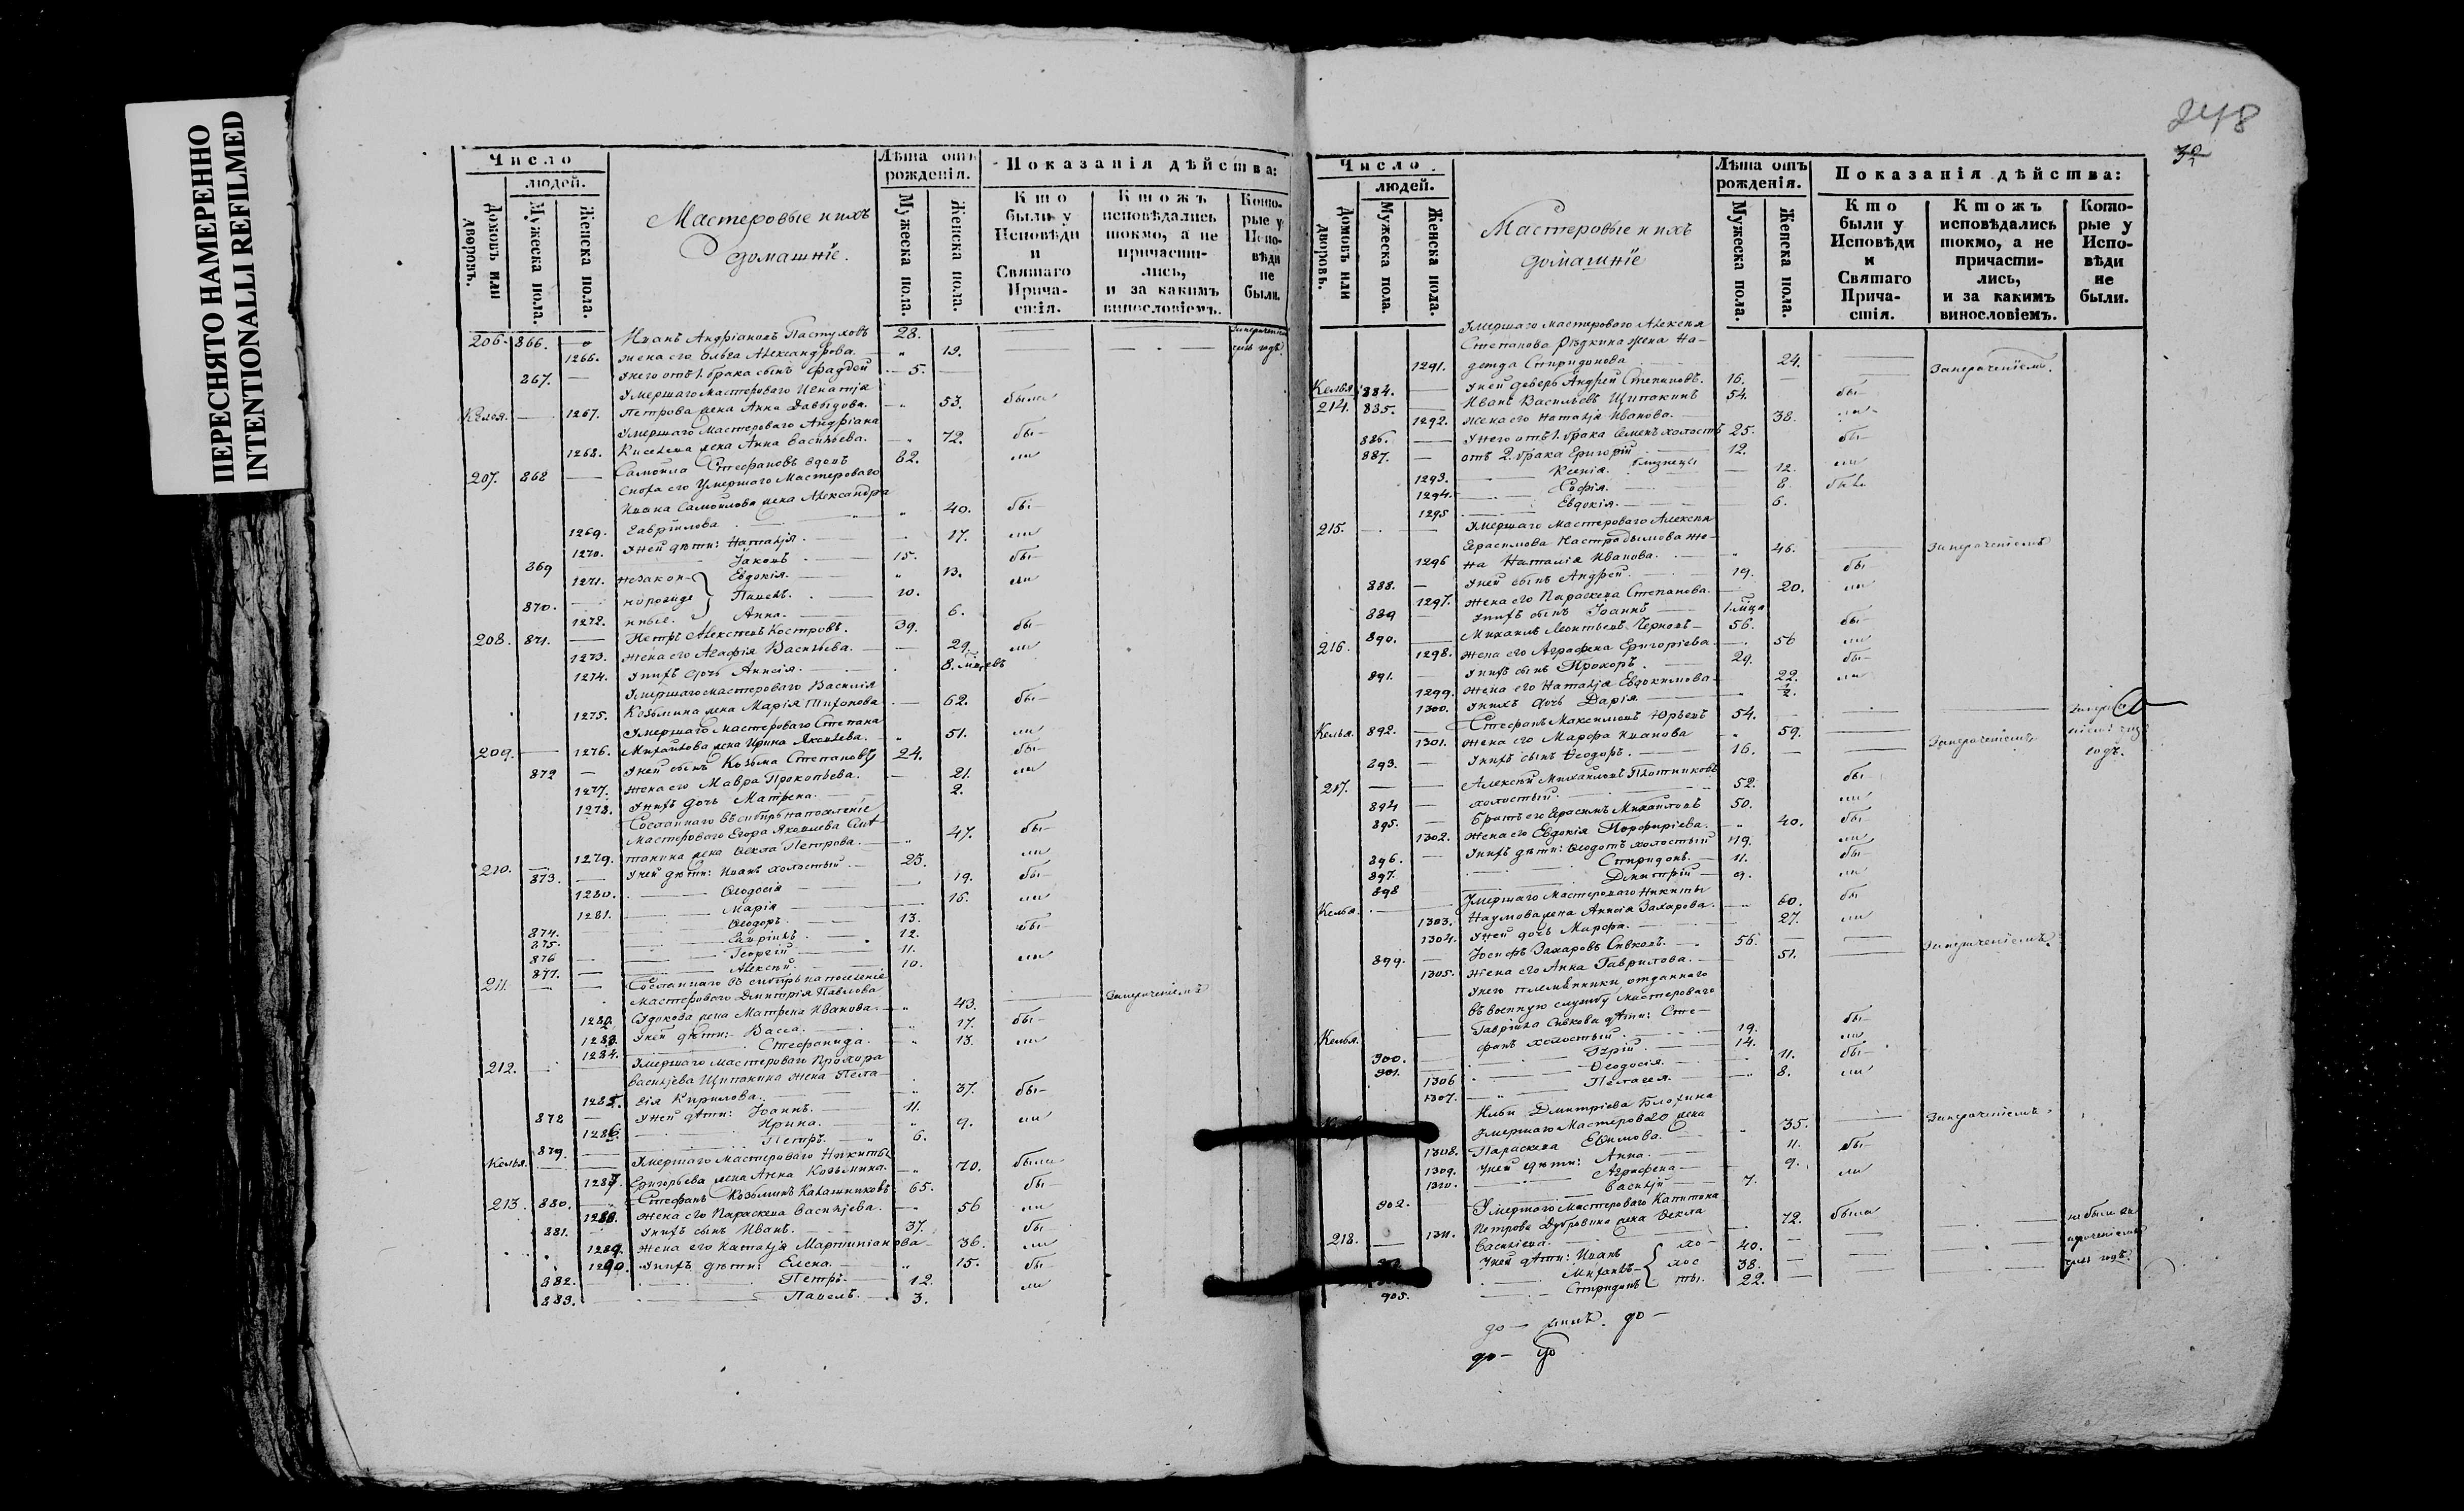 ПЕРЕСНЯТО НАМЕРЕННО
INTENTIONALLI REFILMED
Число
людей.
Домовъ или дворовъ.
Мужеска пола.
Женска пола.
Мастеровые и ихъ
домашніе.
Лѣта отъ рожденія.
Мужеска пола.
Женска пола.
Показанія дѣйства:
Кто были у Исповѣди и Святаго Прича- стія.
Ктожъ исповѣдались токмо, а не причасти- лись, и за какимъ винословіемъ.
Кото- рые у Испо- вѣди не были.
206. 866. Иванъ Андріановъ Пастуховъ 28.
1266. жена его Ольга Александрова. 19.
867. У него отъ 1. брака сынъ Фаддей 5.
Умершаго Мастероваго Игнатія
Келья. 1267. Петрова жена Анна Давыдова. 53. была
Умершаго Мастероваго Андріана
1268. Киселева жена Анна Васильева. 72. бы-
207. 868 Самоила Стефановъ вдовъ 82. ли
Сноха его Умершаго Мастероваго
Ивана Самоилова жена Александра
1269. Гаврилова 40. бы-
1270. У ней дѣти: Наталія. 17. ли
869 Іаковъ 15. бы-
1271. незакон- Евдокія. 13. ли
870. норожде Павелъ. 10.
1272. нные. Анна. 6.
208. 871. Петръ Алексѣевъ Костровъ. 39. бы-
1273. жена его Агафія Васильева. 29. ли
1274. У нихъ дочь Анисія. 8. мцевъ
Умершаго мастероваго Василія
1275. Козьмина жена Марія Тихонова 62. бы-
Умершаго Мастероваго Степана
209. 1276. Михайлова жена Ирина Яковлева. 51. ли
872 У ней сынъ Козьма Степановъ 24. бы-
1277. жена его Мавра Прокопьева. 21. ли
1278. У нихъ дочь Матрена. 2.
Сосланнаго въ сибирь на поселеніе
Мастероваго Егора Яковлева
210. 1279. жена Ѳекла Петрова. 47. бы-
873. У ней дѣти: Иванъ холостый 23. ли
1280. Ѳеодосія 19. бы-
1281. Марія 16. ли
874. Ѳеодоръ. 13. бы-
875. Гавріилъ. 12.
876 Георгій 11.
877. Алексѣй. 10. ли
211. Сосланнаго въ сибирь на поселеніе
Мастероваго Дмитрія Павлова
1282. жена Матрена Иванова. 43. За пораченіемъ
1283. У ней дѣти: Васса. 17. бы-
1284. Стефанида. 13. ли
212. Умершаго мастероваго Прохора
Васильева Щипакина жена Пела-
1285. гія Кирилова. 37. бы-
878 У ней дѣти: Іоаннъ. 11.
1286. Ирина. 9. ли
879. Петръ. 6.
Келья. Умершаго Мастероваго Никиты
1287. Григорьева жена Анна Козьмина. 70. была
213. 880. Стефанъ Козьминъ Калашниковъ 65. бы-
1288. жена его Параскева Васильева. 56 ли
881. У нихъ сынъ Иванъ. 37. бы-
1289. жена его Наталія Мартиніанова 36. ли
1290. У нихъ дѣти: Елена. 15. бы-
882. Петръ. 12. ли
883. Павелъ. 3.
248
Число
людей.
Домовъ или дворовъ.
Мужеска пола.
Женска пола.
Мастеровые и ихъ
домашніе
Лѣта отъ рожденія.
Мужеска пола.
Женска пола.
Показанія дѣйства:
Кто были у Исповѣди и Святаго Прича- стія.
Ктожъ исповѣдались токмо, а не причасти- лись, и за какимъ винословіемъ.
Кото- рые у Испо- вѣди не были.
Умершаго мастероваго Алексѣя
Степанова Рѣдкина жена На-
1291. дежда Спиридонова 24.
Келья 884. У ней деверь Андрей Степановъ. 16. бы-
214. 885. Иванъ Васильевъ Щипакинъ 54. ли-
1292. жена его Наталія Иванова. 38. бы-
886. У него отъ 1. брака Семенъ холостъ 25.
887. отъ 2. брака Григорій 12. ли
1293. Ксенія. близнецы 12.
1294. Софія. 8.
1295 Евдокія. 6.
215. Умершаго мастероваго Алексѣя
Герасимова же-
1296 на Наталія Иванова. 46.
888. У ней сынъ Андрей. 19. бы
1297. жена его Параскева Степанова. 20. ли
889 У нихъ сынъ Іоаннъ 1. мца
216. 890. Михаилъ Леонтьевъ Черновъ 56. бы-
1298. жена его Аграфена Григоріева. 56 ли
891. У нихъ сынъ Прохоръ. 29. бы-
1299. жена его Наталія Евдокимова 22. ли
1300. У нихъ дочь Дарія. 1/2.
Келья. 892. Стефанъ Максимовъ Юрьевъ 54.
1301. жена его Марфа Иванова 59.
893. У нихъ сынъ Ѳеодоръ. 16.
217. Алексѣй Михайловъ Плотниковъ
894 холостый. 52. бы
895. Братъ его Герасимъ Михайловъ 50. ли
1302. жена его Евдокія Порфиріева. 40. бы
896. У нихъ дѣти: Ѳеодотъ холостый 19. ли
897. Спиридонъ. 11. бы-
898 Дмитрій 9. ли
Келья. Умершаго Мастероваго Никиты
1303. Наумова жена Анисія Захарова. 60. бы
1304. У ней дочь Марфа. 27. ли
899. Іосифъ Захаровъ Сивковъ. 56.
1305. жена его Анна Гаврилова. 51.
У него племянники, отданнаго
въ военную службу Мастероваго
Гавріила Сивкова дѣти: Сте-
Келья. фанъ холостый 19. бы-
900. Гурій 14. ли
901. 1306 Ѳеодосія. 11. бы-
1307. Пелагея. 8. ли
Ильи Дмитріева Блохина
Умершаго Мастероваго жена
1308. Параскева Ефимова. 35.
1309. У ней дѣти: Анна. 11. бы
1310. Аграфена 9. ли
902. Василій 7.
Умершаго Мастероваго Капитона
1311. Петрова Дубровина жена Ѳекла
218. Васильева. 72. была
У ней дѣти: Иванъ хо- 40.
Михаилъ лос 38.
905. Спиридонъ ты. 22.